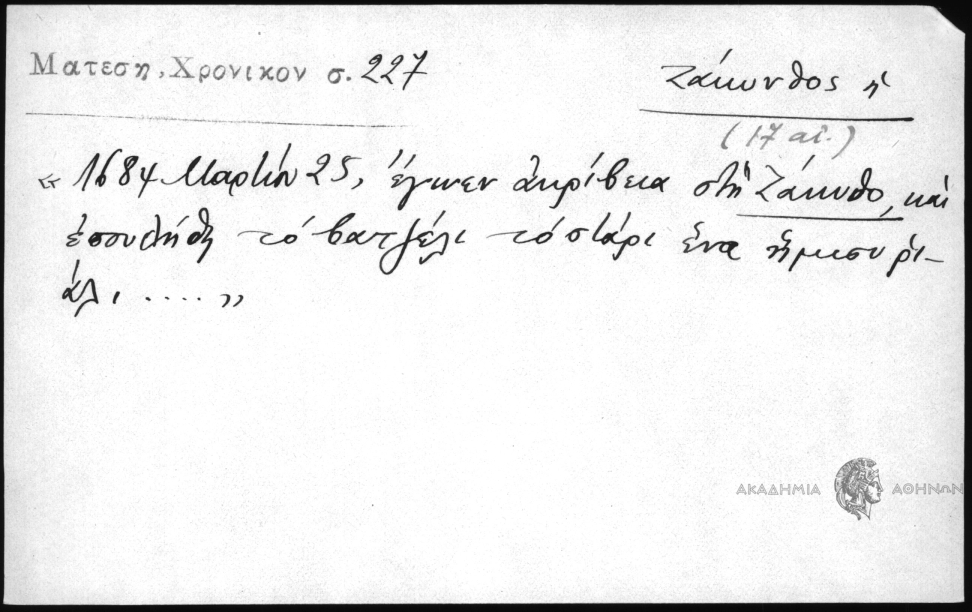 Ματεση, Χρονικον σ. 227
Ζάκυνθος ἡ
(17 αἰ.)
« 1684 Μαρτίου 25, ἔγινεν ἀκρίβεια στὴ Ζάκυθο, καὶ
ἐπουλήθη τὸ βατζέλι τὸ στάρι ἕνα ἥμισυ ρι-
άλι .... »
ΑΚΑΔΗΜΙΑ ΑΘΗΝΩΝ